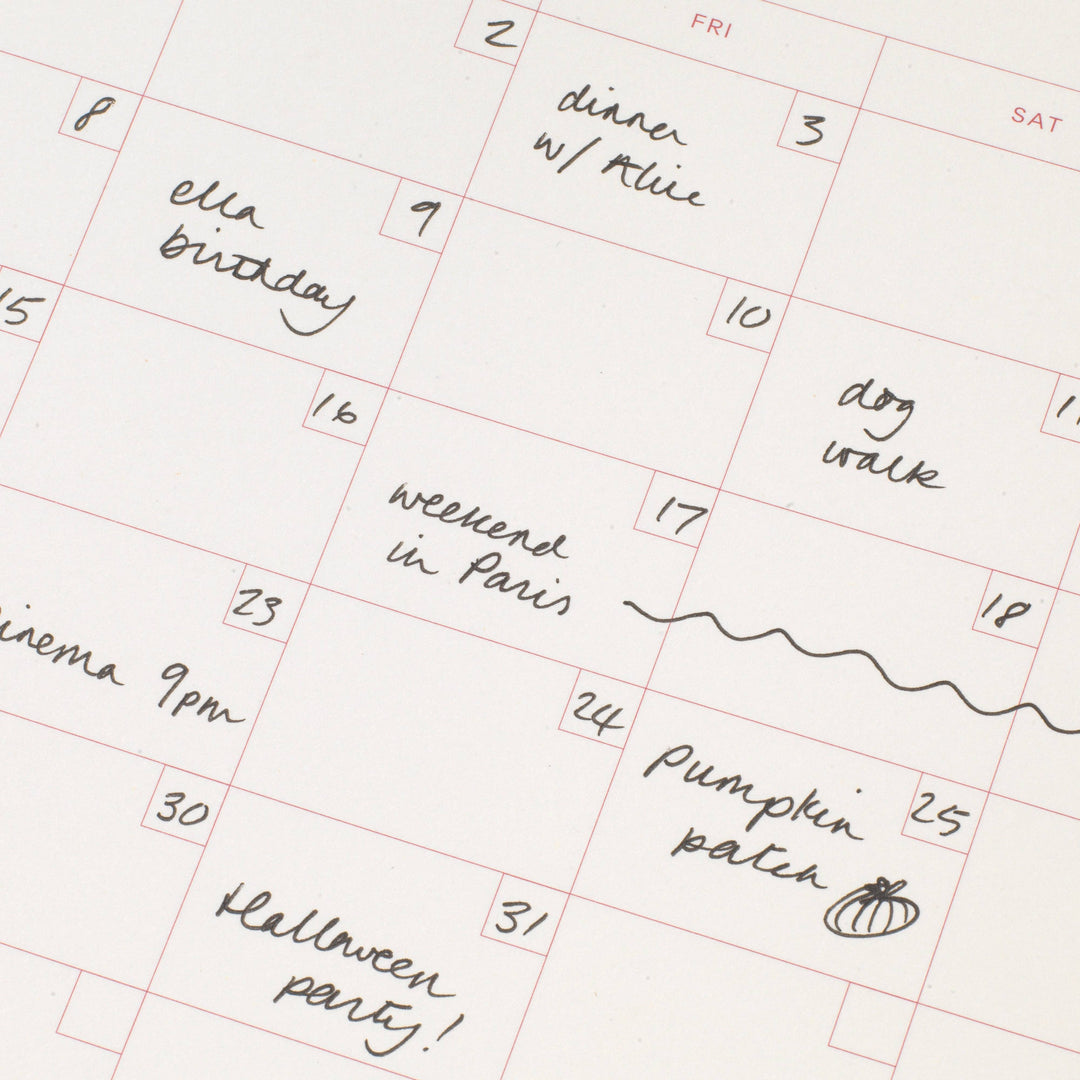 FRI
SAT
2
dinner
w/ Alice
3
8
ella
birthday
9
10
dog
walk
15
16
weekend
in Paris
17
18
23
9pm
24
pumpkin
patch
25
30
Halloween
party!
31